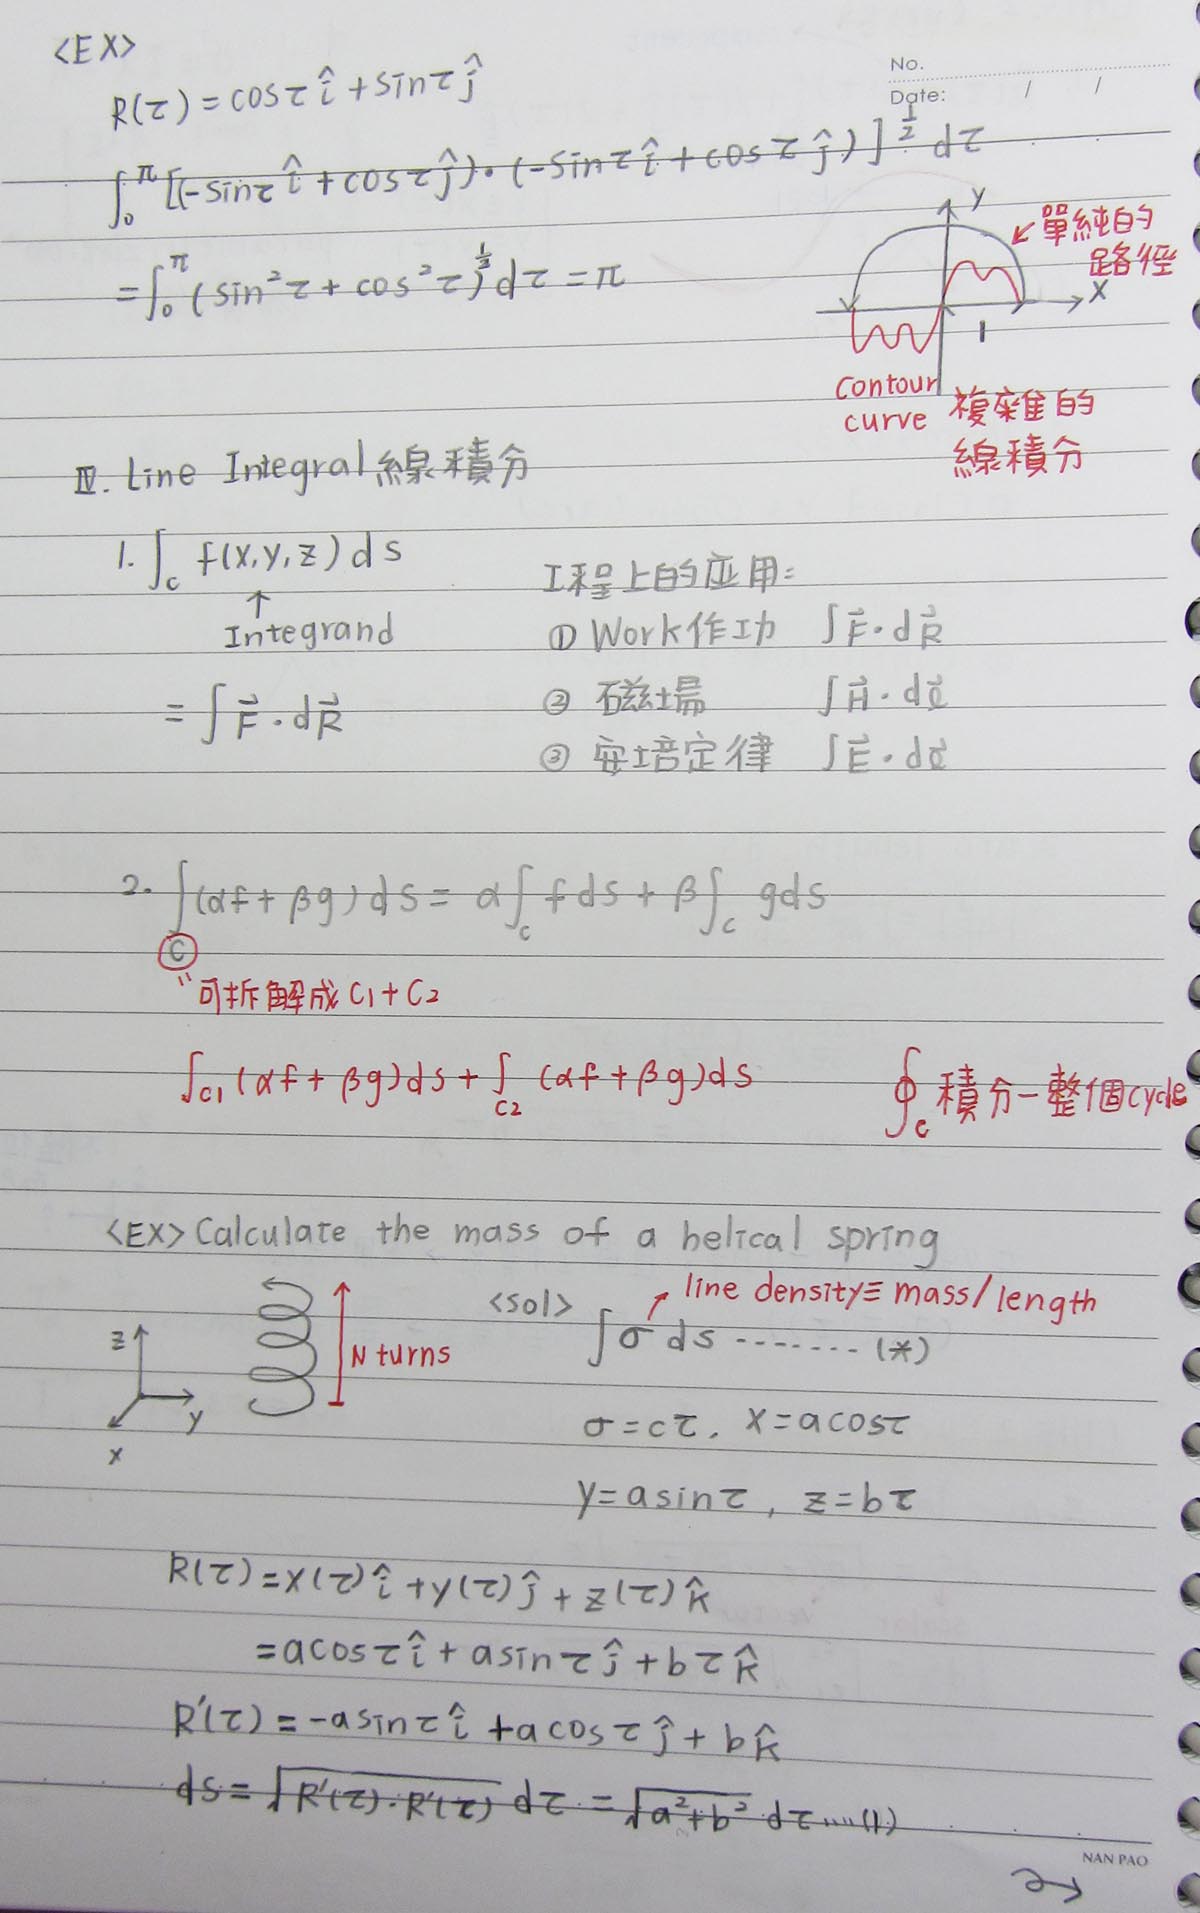 <EX>
No.
Date: / /
R(τ) = cosτ î + sinτ ĵ
∫₀^π [(-sinτ î + cosτ ĵ)·(-sinτ î + cosτ ĵ)]^½ dτ
= ∫₀^π (sin²τ + cos²τ)^½ dτ = π
Y
單純的
路徑
X
1
contour
curve
複雜的
線積分
Ⅳ. Line Integral 線積分
1. ∫_c f(x,y,z) ds
↑
Integrand
= ∫ F⃗ · dR⃗
工程上的应用:
① Work作功 ∫ F⃗ · dR⃗
② 磁場 ∫ H⃗ · dℓ⃗
③ 安培定律 ∫ E⃗ · dℓ⃗
2. ∫_C (αf + βg) ds = α∫_c f ds + β∫_c g ds
" 可拆解成 C1 + C2
∫_C1 (αf + βg) ds + ∫_C2 (αf + βg) ds
∮_c 積分一整個cycle
<EX> Calculate the mass of a helical spring
z
y
x
N turns
<sol> ∫ σ ds ------- (*)
line density ≡ mass/length
σ = cτ, x = a cosτ
y = a sinτ, z = bτ
R(τ) = x(τ) î + y(τ) ĵ + z(τ) k̂
= a cosτ î + a sinτ ĵ + bτ k̂
R'(τ) = -a sinτ î + a cosτ ĵ + b k̂
ds = √(R'(τ)·R'(τ)) dτ = √(a²+b²) dτ ....(1)
NAN PAO